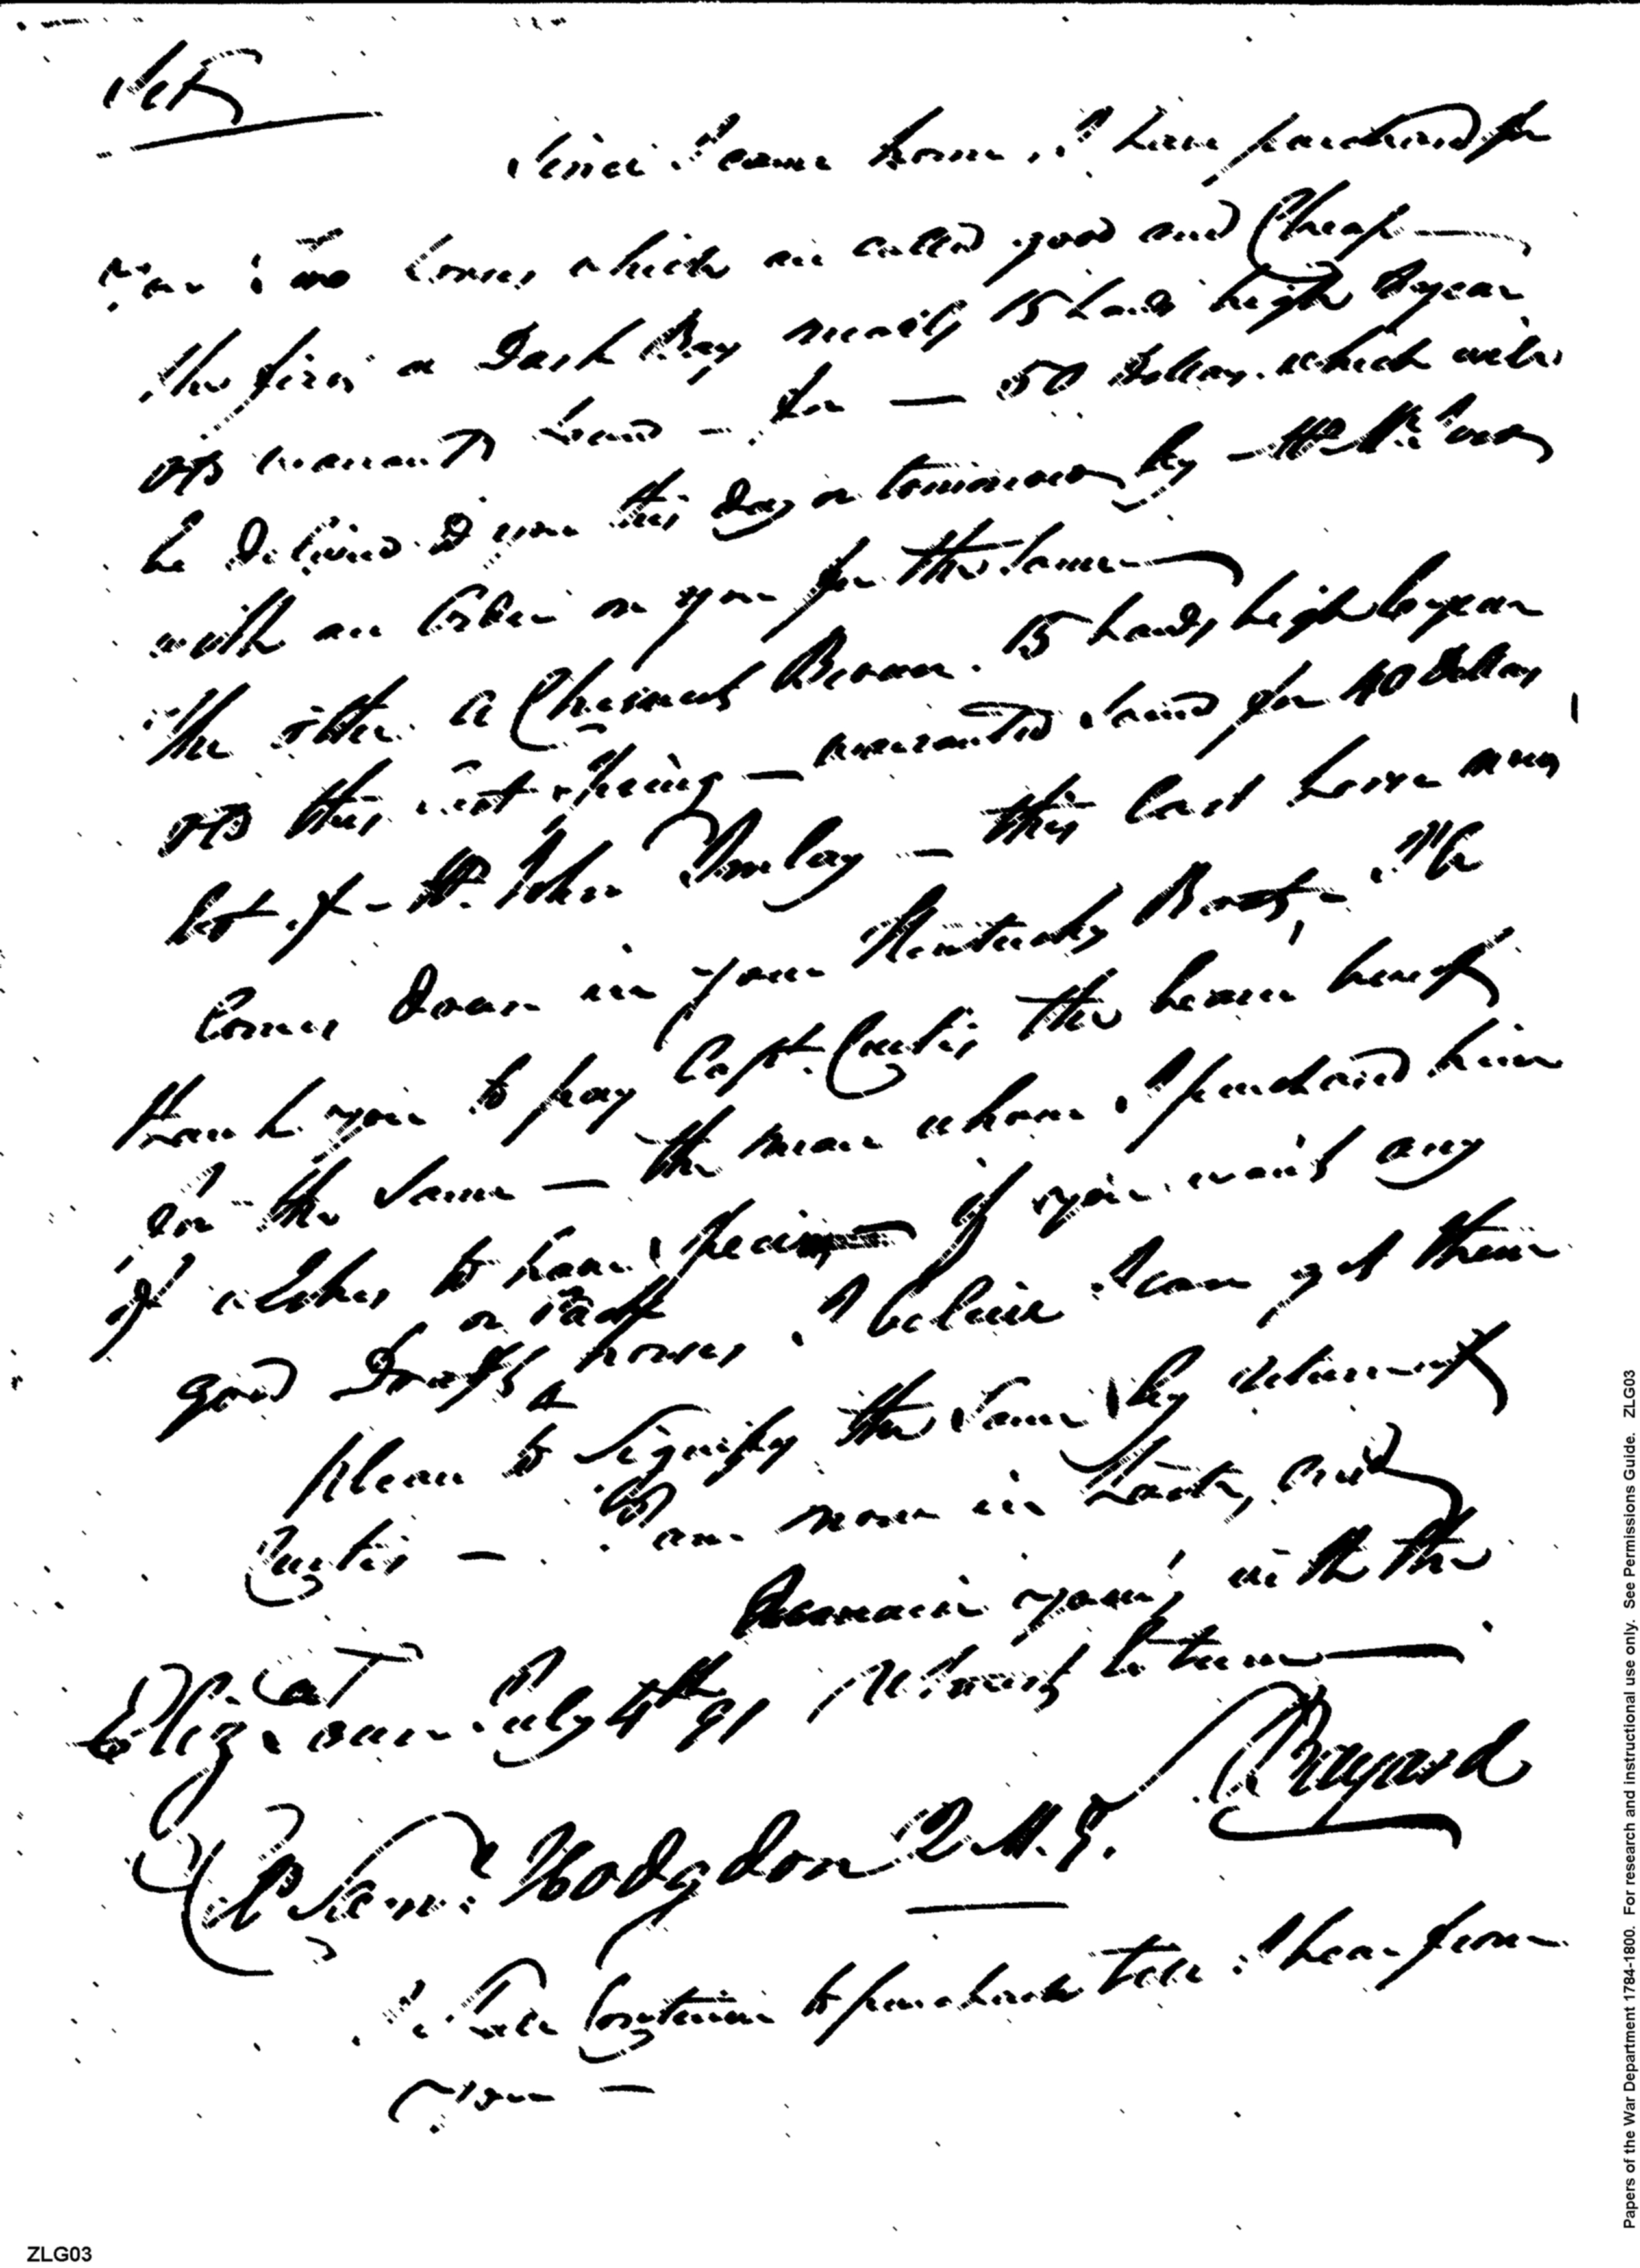 Sir
Since I came home, I have purchased for
you two horses which are called good and Cheap —
The first a Dark Bay nearly 15 hands high 8 year
old warrant'd sound — for — 50 Dollars. which will
be Delivered to you this day or tomorrow by — Mr
with an order on you for the same
The other a Chesnut Brown. 15 hands high 6 year
old this last spring — warranted sound for 40 Dollars
bot of — Mr. John Imlay — this last horse
Comes down in your Kentucky Boat,
thank you to pay Capt. Curtis the bearer hereof
for the same — the man whom I purchased him
of wishes to have specie if you want any
good Draft or Pack horses, I believe I can get them
please to signify the same by return of
Curtis — I am now in haste, but
Remain yours, with the
Utmost Esteem
Eliz. Town July 4th 91
Bayard
Saml. Hodgdon Q.M.G.
I will Continue to purchase till I hear from
you —
ZLG03
Papers of the War Department 1784-1800. For research and instructional use only. See Permissions Guide. ZLG03